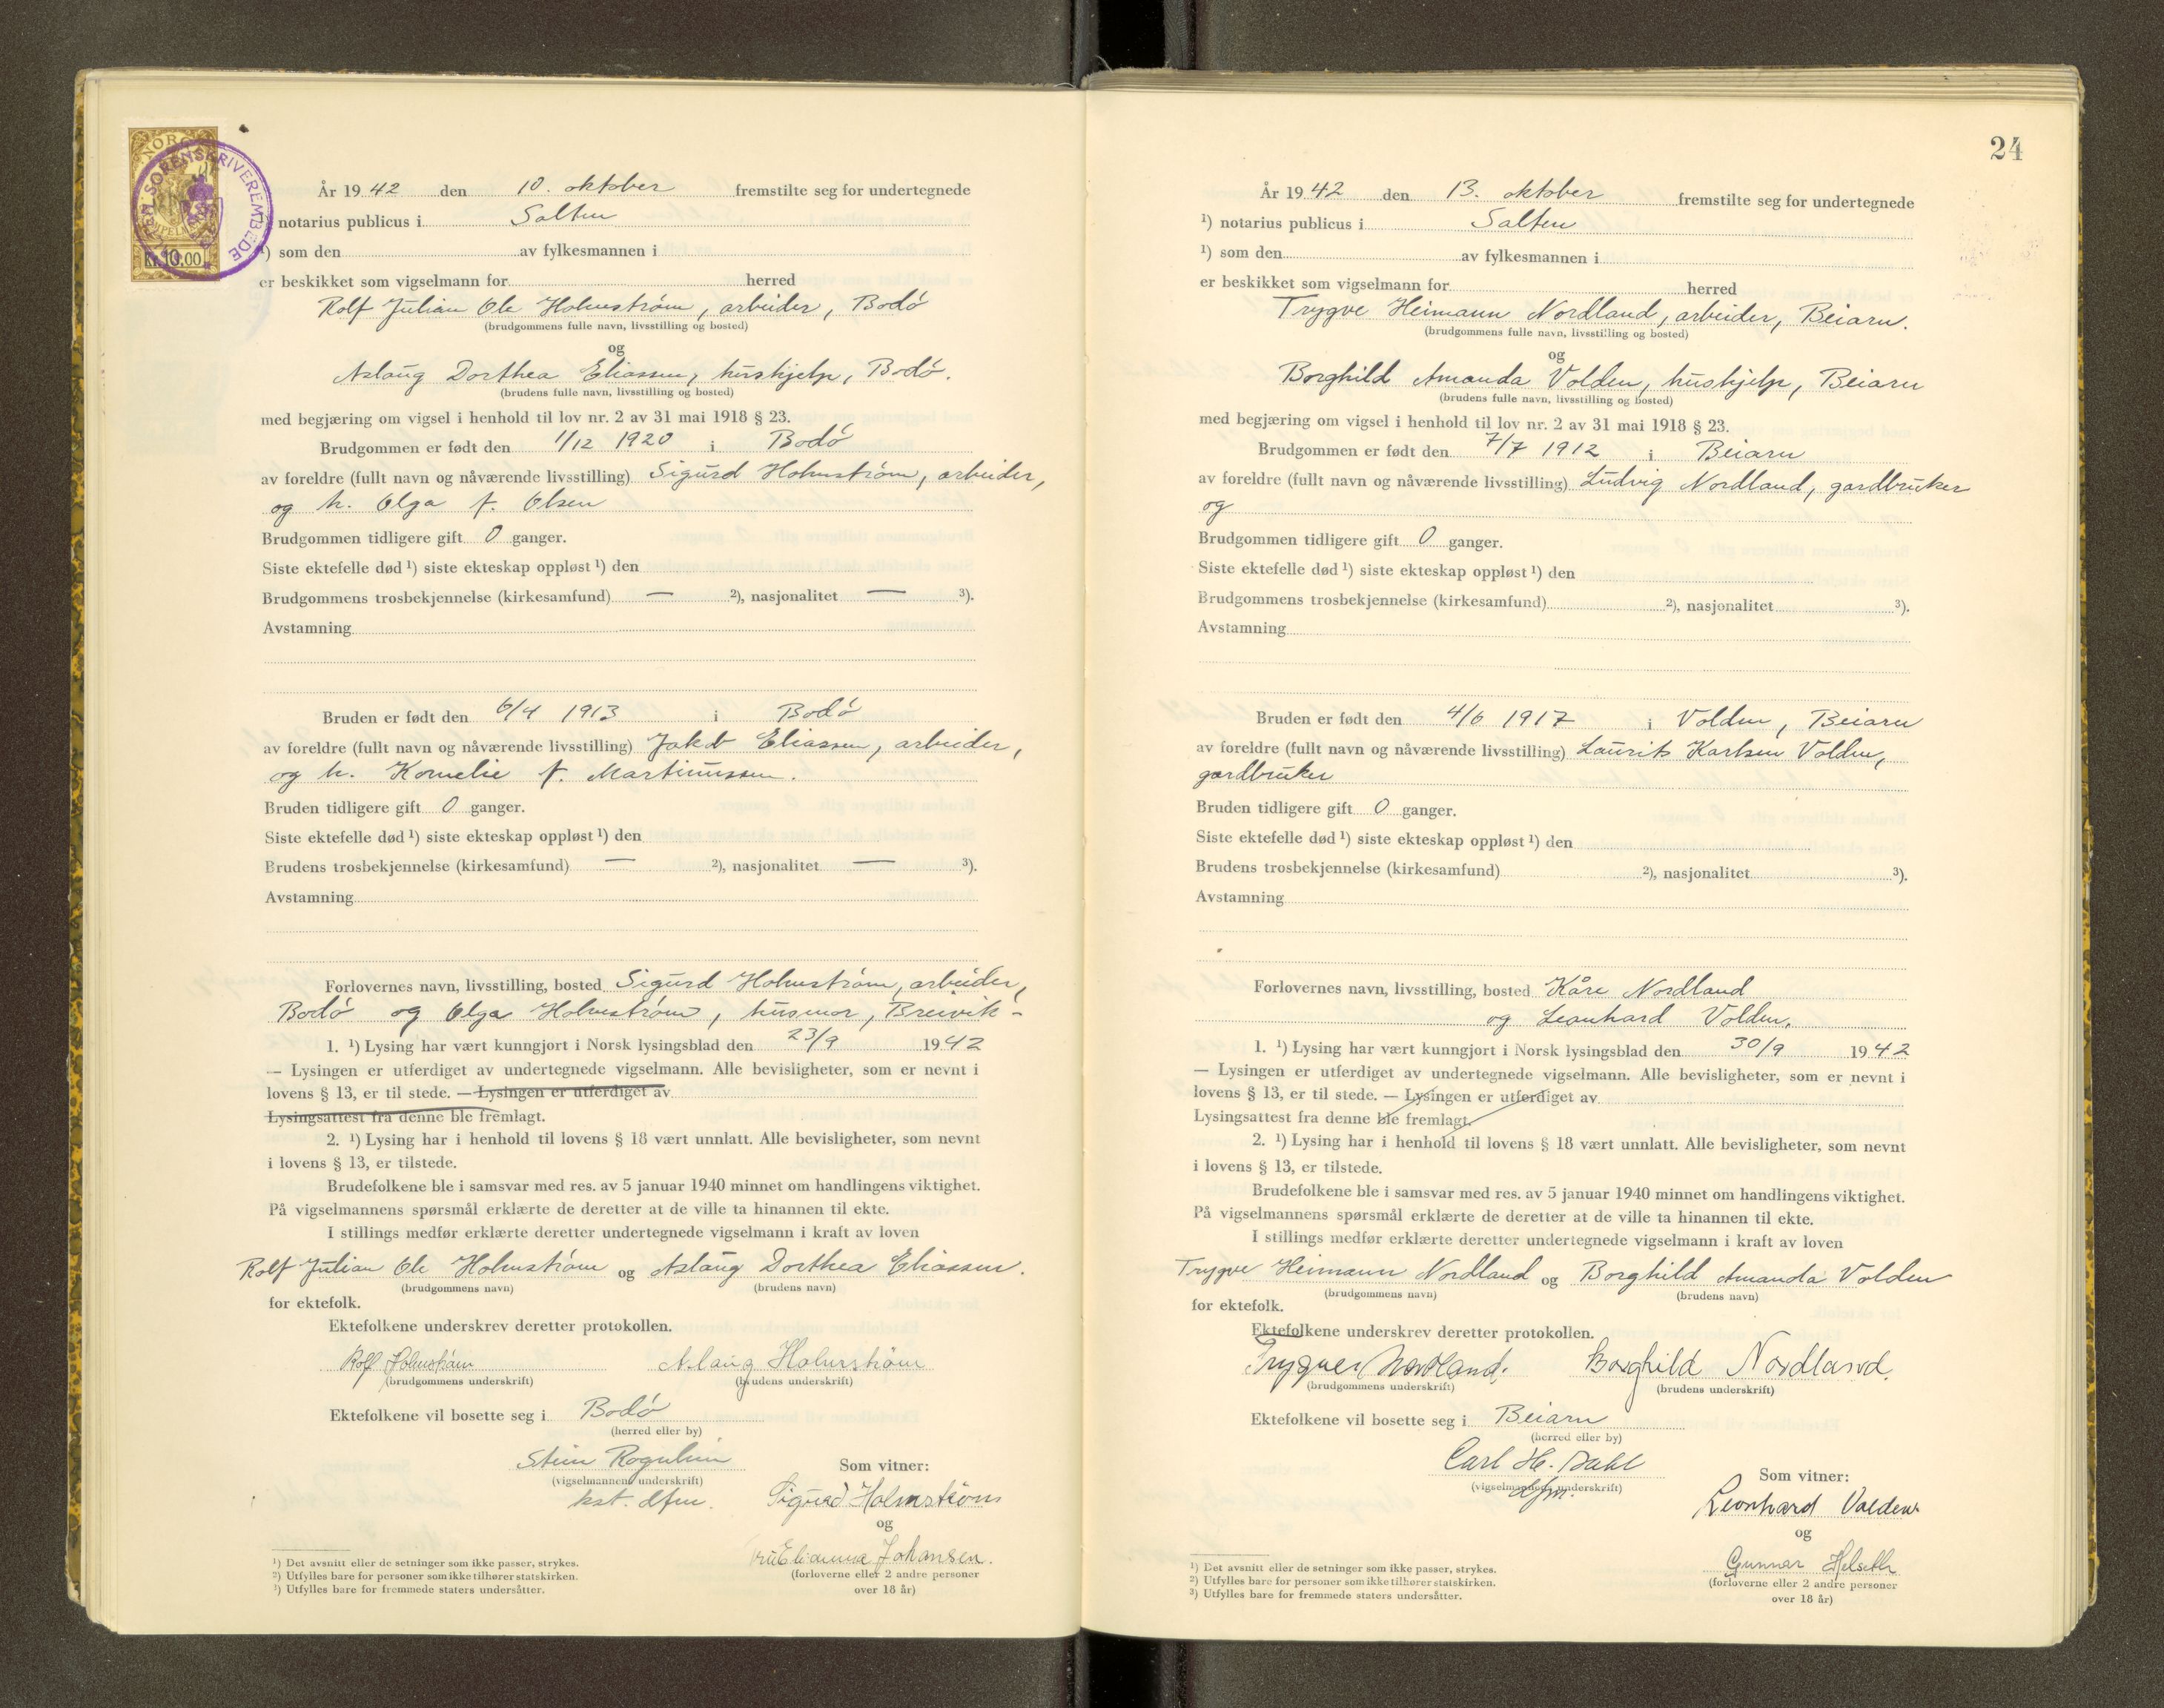 NORGE
SALTEN SORENSKRIVEREMBEDE
Kr. 10.00
År 1942 den 10. oktober fremstilte seg for undertegnede
notarius publicus i Salten
¹) som den av fylkesmannen i
er beskikket som vigselmann for herred
Rolf Julian Ole Holmstrøm, arbeider, Bodø
(brudgommens fulle navn, livsstilling og bosted)
og
Aslaug Dorthea Eliassen, hushjelp, Bodø.
(brudens fulle navn, livsstilling og bosted)
med begjæring om vigsel i henhold til lov nr. 2 av 31 mai 1918 § 23.
Brudgommen er født den 1/12 1920 i Bodø
av foreldre (fullt navn og nåværende livsstilling) Sigurd Holmstrøm, arbeider,
og h. Olga f. Olsen
Brudgommen tidligere gift 0 ganger.
Siste ektefelle død ¹) siste ekteskap oppløst ¹) den
Brudgommens trosbekjennelse (kirkesamfund) — ²), nasjonalitet — ³).
Avstamning
Bruden er født den 6/4 1913 i Bodø
av foreldre (fullt navn og nåværende livsstilling) Jakob Eliassen, arbeider,
og h. Kornelie f. Martinussen.
Bruden tidligere gift 0 ganger.
Siste ektefelle død ¹) siste ekteskap oppløst ¹) den
Brudens trosbekjennelse (kirkesamfund) — ²), nasjonalitet — ³).
Avstamning
Forlovernes navn, livsstilling, bosted Sigurd Holmstrøm, arbeider,
Bodø og Olga Holmstrøm, husmor, Breivik -
1. ¹) Lysing har vært kunngjort i Norsk lysingsblad den 23/9 1942
— Lysingen er utferdiget av undertegnede vigselmann. Alle bevisligheter, som er nevnt i
lovens § 13, er til stede. — Lysingen er utferdiget av
Lysingsattest fra denne ble fremlagt.
2. ¹) Lysing har i henhold til lovens § 18 vært unnlatt. Alle bevisligheter, som nevnt
i lovens § 13, er tilstede.
Brudefolkene ble i samsvar med res. av 5 januar 1940 minnet om handlingens viktighet.
På vigselmannens spørsmål erklærte de deretter at de ville ta hinannen til ekte.
I stillings medfør erklærte deretter undertegnede vigselmann i kraft av loven
Rolf Julian Ole Holmstrøm og Aslaug Dorthea Eliassen.
(brudgommens navn) (brudens navn)
for ektefolk.
Ektefolkene underskrev deretter protokollen.
Rolf Holmstrøm Aslaug Holmstrøm
(brudgommens underskrift) (brudens underskrift)
Ektefolkene vil bosette seg i Bodø
(herred eller by)
Stein Rognlien
(vigselmannens underskrift)
kst. dfm.
Som vitner:
Sigurd Holmstrøm
og
Johansen.
(forloverne eller 2 andre personer
over 18 år)
¹) Det avsnitt eller de setninger som ikke passer, strykes.
²) Utfylles bare for personer som ikke tilhører statskirken.
³) Utfylles bare for fremmede staters undersåtter.
24
År 1942 den 13. oktober fremstilte seg for undertegnede
¹) notarius publicus i Salten
¹) som den av fylkesmannen i
er beskikket som vigselmann for herred
Trygve Heimann Nordland, arbeider, Beiarn.
(brudgommens fulle navn, livsstilling og bosted)
og
Borghild Amanda Volden, hushjelp, Beiarn
(brudens fulle navn, livsstilling og bosted)
med begjæring om vigsel i henhold til lov nr. 2 av 31 mai 1918 § 23.
Brudgommen er født den 7/7 1912 i Beiarn
av foreldre (fullt navn og nåværende livsstilling) Ludvig Nordland, gardbruker
og
Brudgommen tidligere gift 0 ganger.
Siste ektefelle død ¹) siste ekteskap oppløst ¹) den
Brudgommens trosbekjennelse (kirkesamfund) ²), nasjonalitet ³).
Avstamning
Bruden er født den 4/6 1917 i Volden, Beiarn
av foreldre (fullt navn og nåværende livsstilling) Laurits Karlsen Volden,
gardbruker
Bruden tidligere gift 0 ganger.
Siste ektefelle død ¹) siste ekteskap oppløst ¹) den
Brudens trosbekjennelse (kirkesamfund) ²), nasjonalitet ³).
Avstamning
Forlovernes navn, livsstilling, bosted Kåre Nordland
og Leonhard Volden.
1. ¹) Lysing har vært kunngjort i Norsk lysingsblad den 30/9 1942
— Lysingen er utferdiget av undertegnede vigselmann. Alle bevisligheter, som er nevnt i
lovens § 13, er til stede. — Lysingen er utferdiget av
Lysingsattest fra denne ble fremlagt.
2. ¹) Lysing har i henhold til lovens § 18 vært unnlatt. Alle bevisligheter, som nevnt
i lovens § 13, er tilstede.
Brudefolkene ble i samsvar med res. av 5 januar 1940 minnet om handlingens viktighet.
På vigselmannens spørsmål erklærte de deretter at de ville ta hinannen til ekte.
I stillings medfør erklærte deretter undertegnede vigselmann i kraft av loven
Trygve Heimann Nordland og Borghild Amanda Volden
(brudgommens navn) (brudens navn)
for ektefolk.
Ektefolkene underskrev deretter protokollen.
Trygve Nordland. Borghild Nordland.
(brudgommens underskrift) (brudens underskrift)
Ektefolkene vil bosette seg i Beiarn
(herred eller by)
Carl H. Dahl
(vigselmannens underskrift)
dfm.
Som vitner:
Leonhard Volden
og
Gunnar Helseth
(forloverne eller 2 andre personer
over 18 år)
¹) Det avsnitt eller de setninger som ikke passer, strykes.
²) Utfylles bare for personer som ikke tilhører statskirken.
³) Utfylles bare for fremmede staters undersåtter.